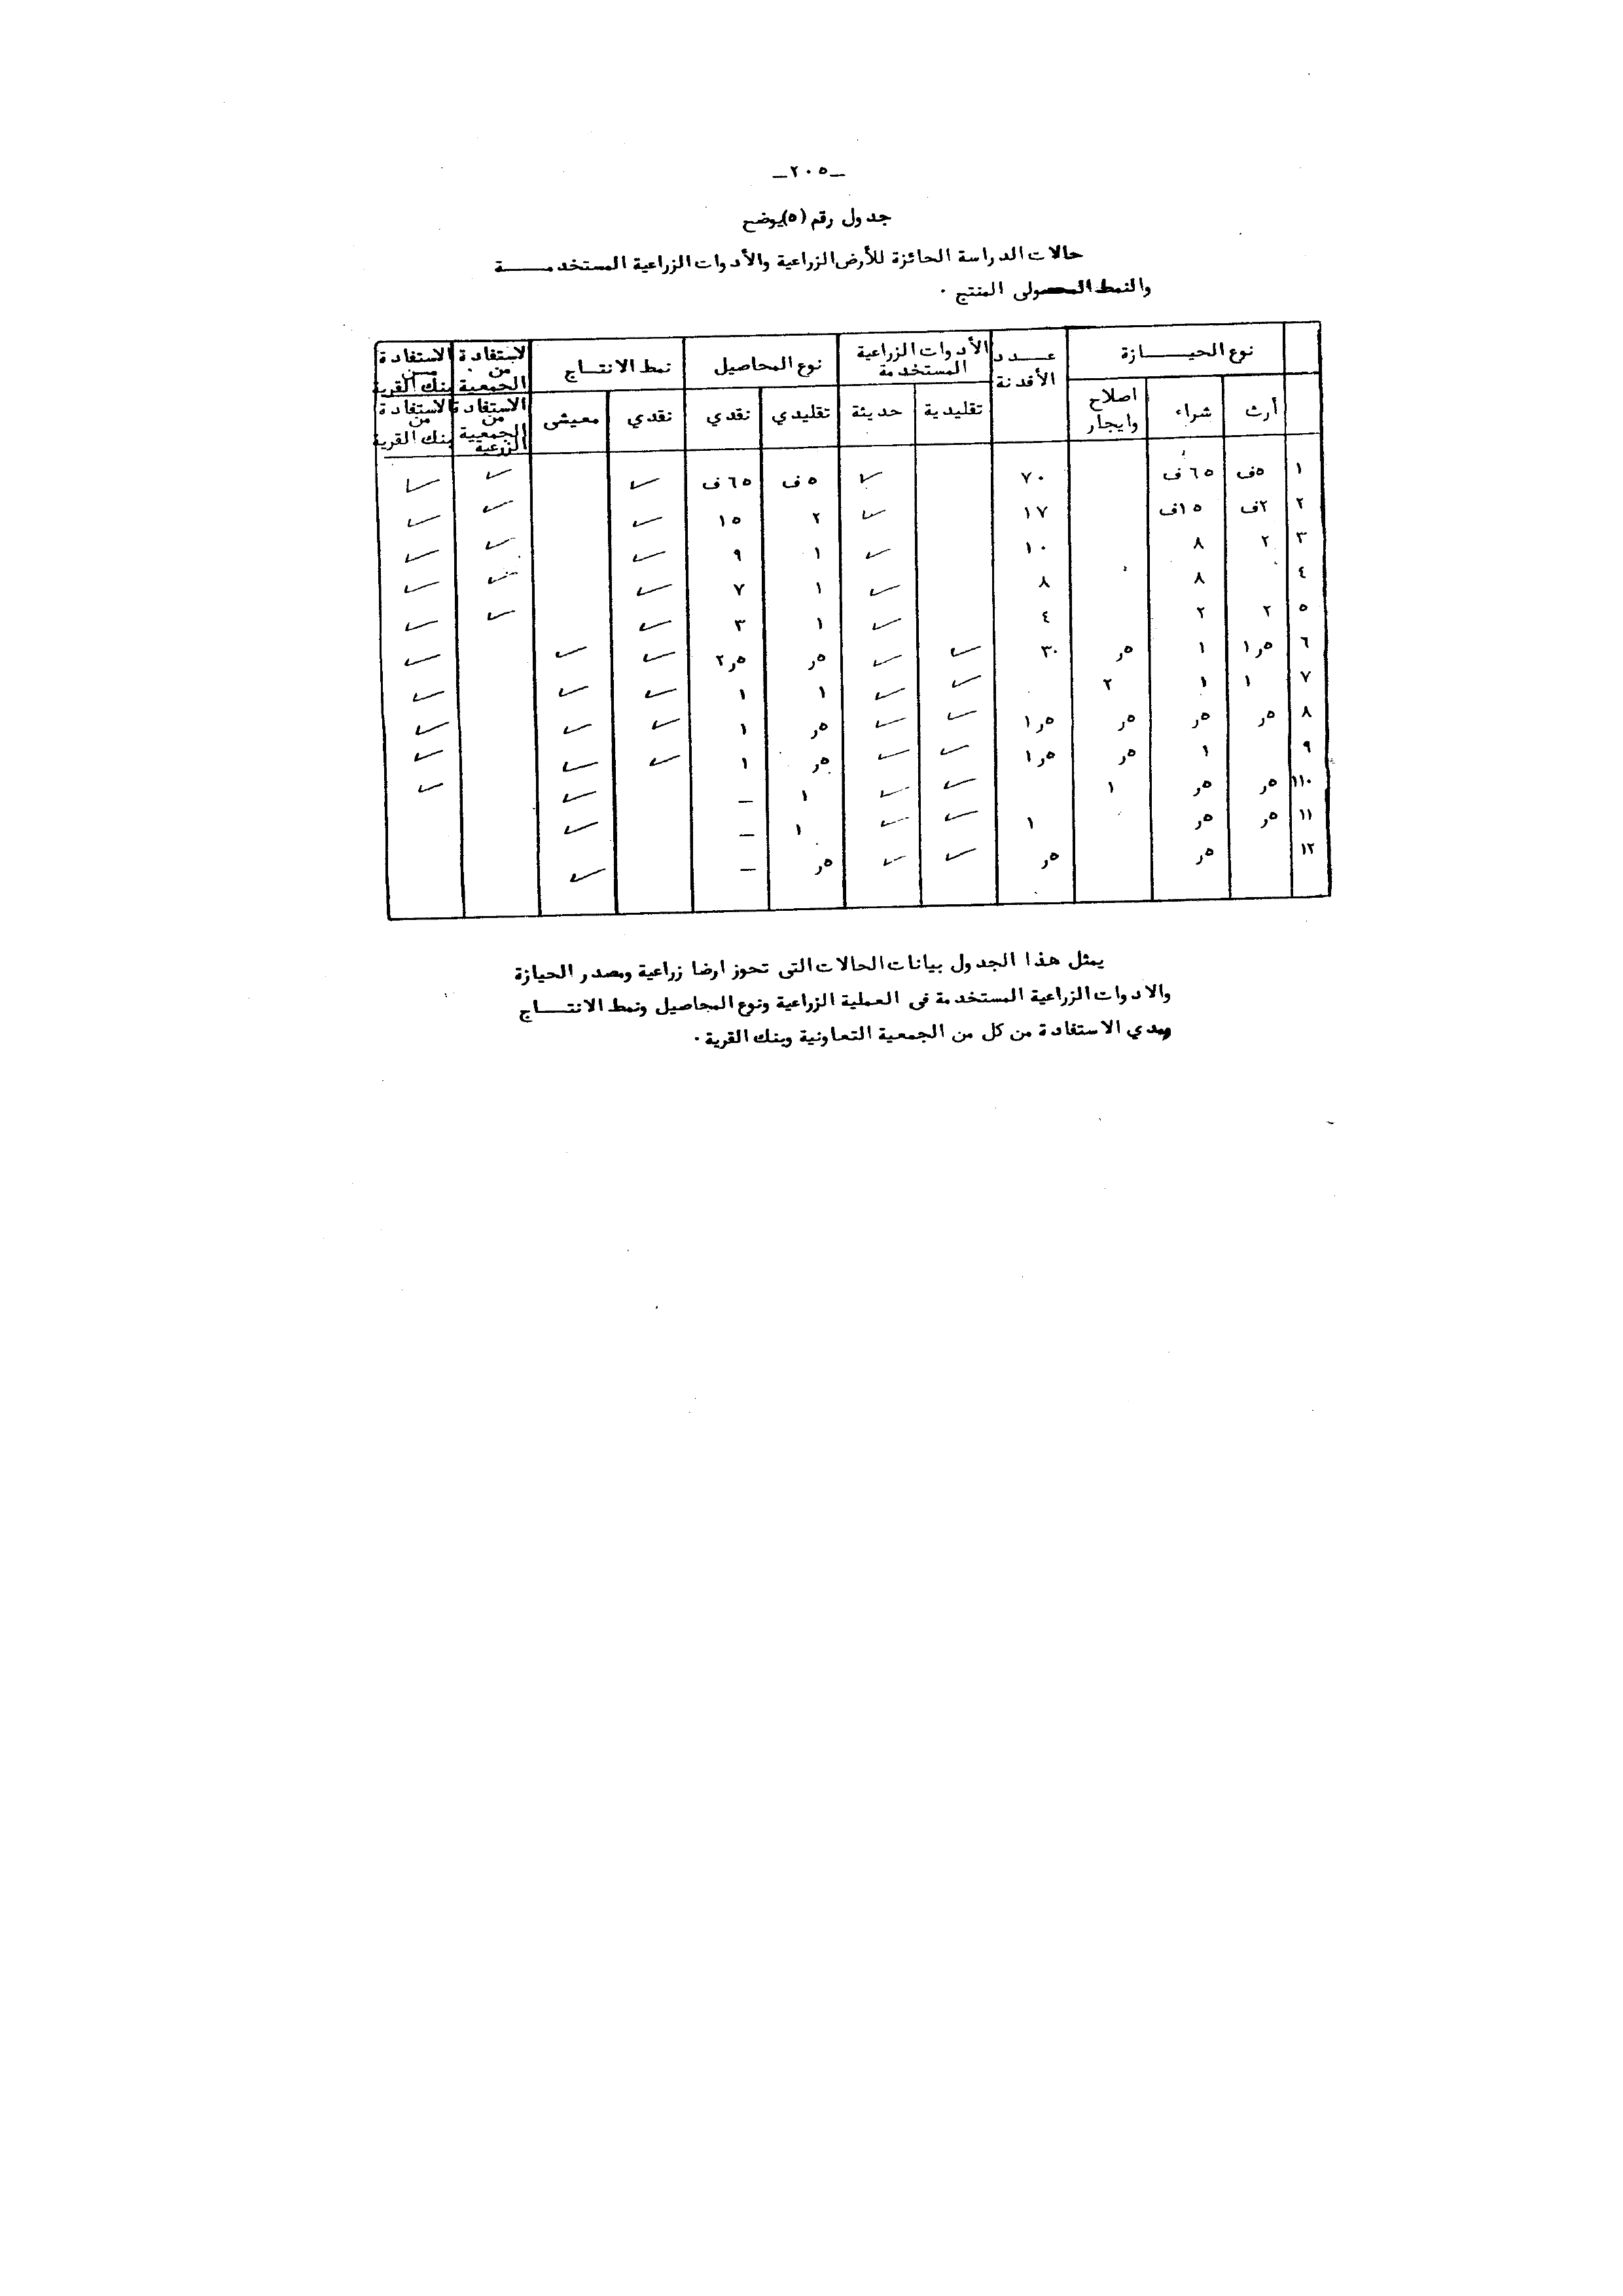 ـ٢٠٥ـ
جدول رقم (٥)يوضح
حالات الدراسة الحائزة للأرض الزراعية والأدوات الزراعية المستخدمـــــة
والنمط المحصولى المنتج ٠
نوع الحيــــازة عــدد الأفدنة الأدوات الزراعية المستخدمة نوع المحاصيل نمط الانتــاج الاستفادة من الجمعية الاستفادة مــن بنك القرية
أرث شراء اصلاح وايجار تقليدية حديثة تقليدي نقدي نقدي معيشى الاستفادة من الجمعية الزرعية الاستفادة من بنك القرية
١ ٥ف ٦٥ ف ٧٠ ✓ ٥ ف ٦٥ ف ✓ ✓ ✓
٢ ٢ف ١٥ف ١٧ ✓ ٢ ١٥ ✓ ✓ ✓
٣ ٢ ٨ ١٠ ✓ ١ ٩ ✓ ✓ ✓
٤ ٨ ٨ ✓ ١ ٧ ✓ ✓ ✓
٥ ٢ ٢ ٤ ✓ ١ ٣ ✓ ✓ ✓
٦ ٥ر١ ١ ٥ر ٣٠ ✓ ✓ ٥ر ٥ر٢ ✓ ✓ ✓
٧ ١ ١ ٢ ✓ ✓ ١ ١ ✓ ✓ ✓
٨ ٥ر ٥ر ٥ر ٥ر١ ✓ ✓ ٥ر ١ ✓ ✓ ✓
٩ ١ ٥ر ٥ر١ ✓ ✓ ٥ر ١ ✓ ✓ ✓
١١٠ ٥ر ٥ر ١ ✓ ✓ ١ ـ ✓ ✓
١١ ٥ر ٥ر ١ ✓ ✓ ١ ـ ✓
١٢ ٥ر ٥ر ✓ ✓ ٥ر ـ ✓
يمثل هذا الجدول بيانات الحالات التى تحوز ارضا زراعية ومصدر الحيازة
والادوات الزراعية المستخدمة فى العملية الزراعية ونوع المحاصيل ونمط الانتــــاج
ومدي الاستفادة من كل من الجمعية التعاونية وبنك القرية ٠